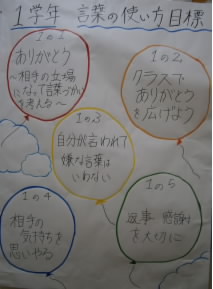 1学年 言葉の使い方目標
1の1
ありがとう
～相手の立場
になって言葉づかい
を考える～
1の2
クラスで
ありがとう
を広げよう
1の3
自分が言われて
嫌な言葉は
いわない
1の4
相手の
気持ちを
思いやる
1の5
返事 感謝
を大切に